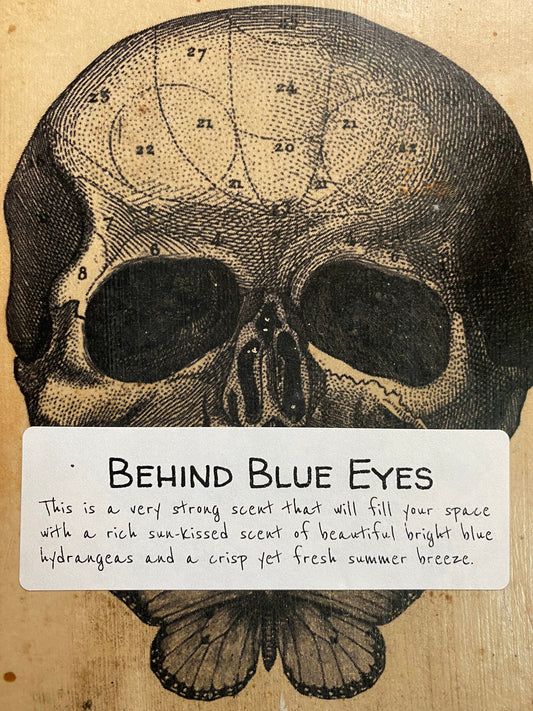 27
24
25
21
21
22
20
21
21
7
6
8
8
BEHIND BLUE EYES
This is a very strong scent that will fill your space
with a rich sun-kissed scent of beautiful bright blue
hydrangeas and a crisp yet fresh summer breeze.